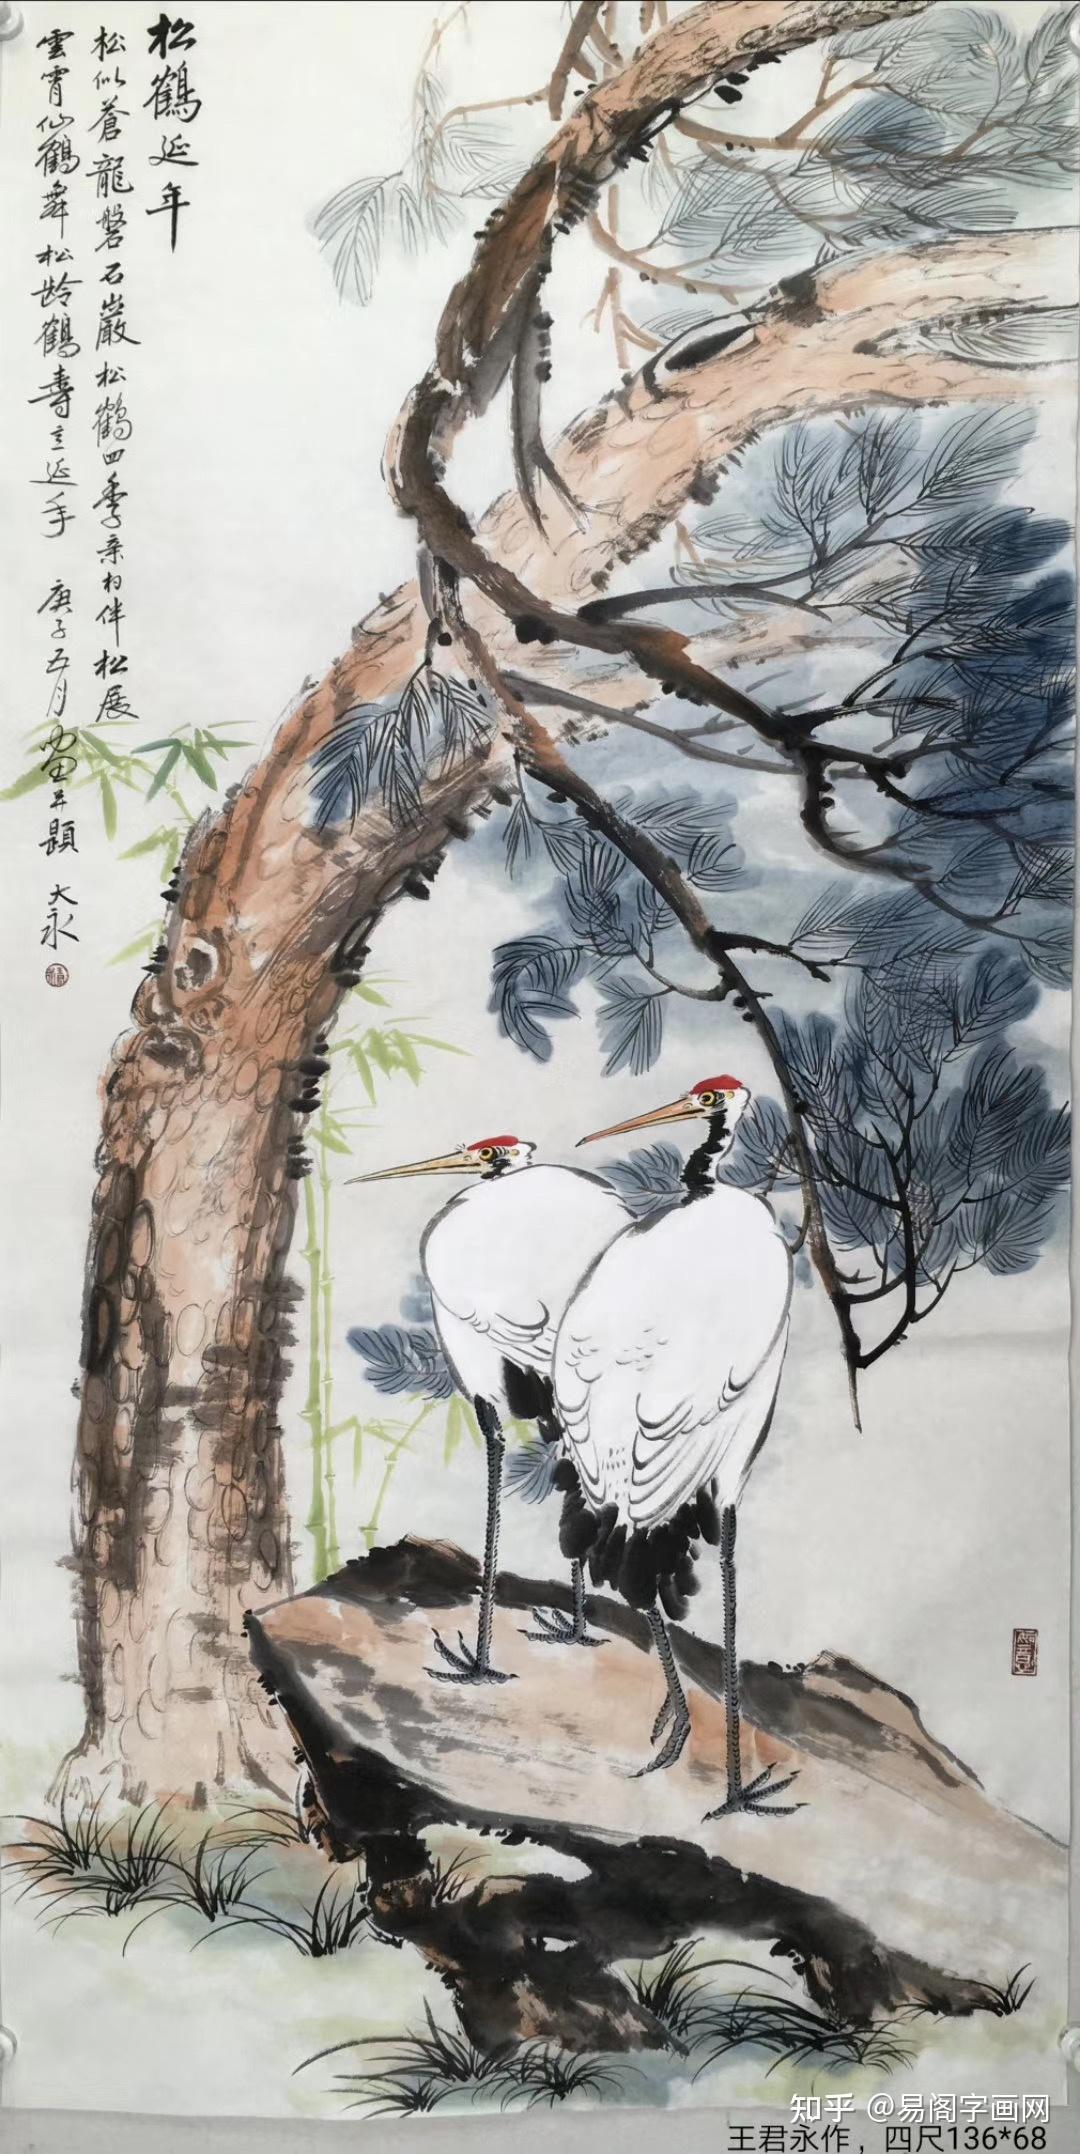 松鶴延年
松似蒼龍磐石巖松鶴四季亲相伴松展
雲霄仙鶴舞松龄鶴壽立延年 庚子五月画并題 大永
如意
知乎 @易阁字画网
王君永作，四尺136*68